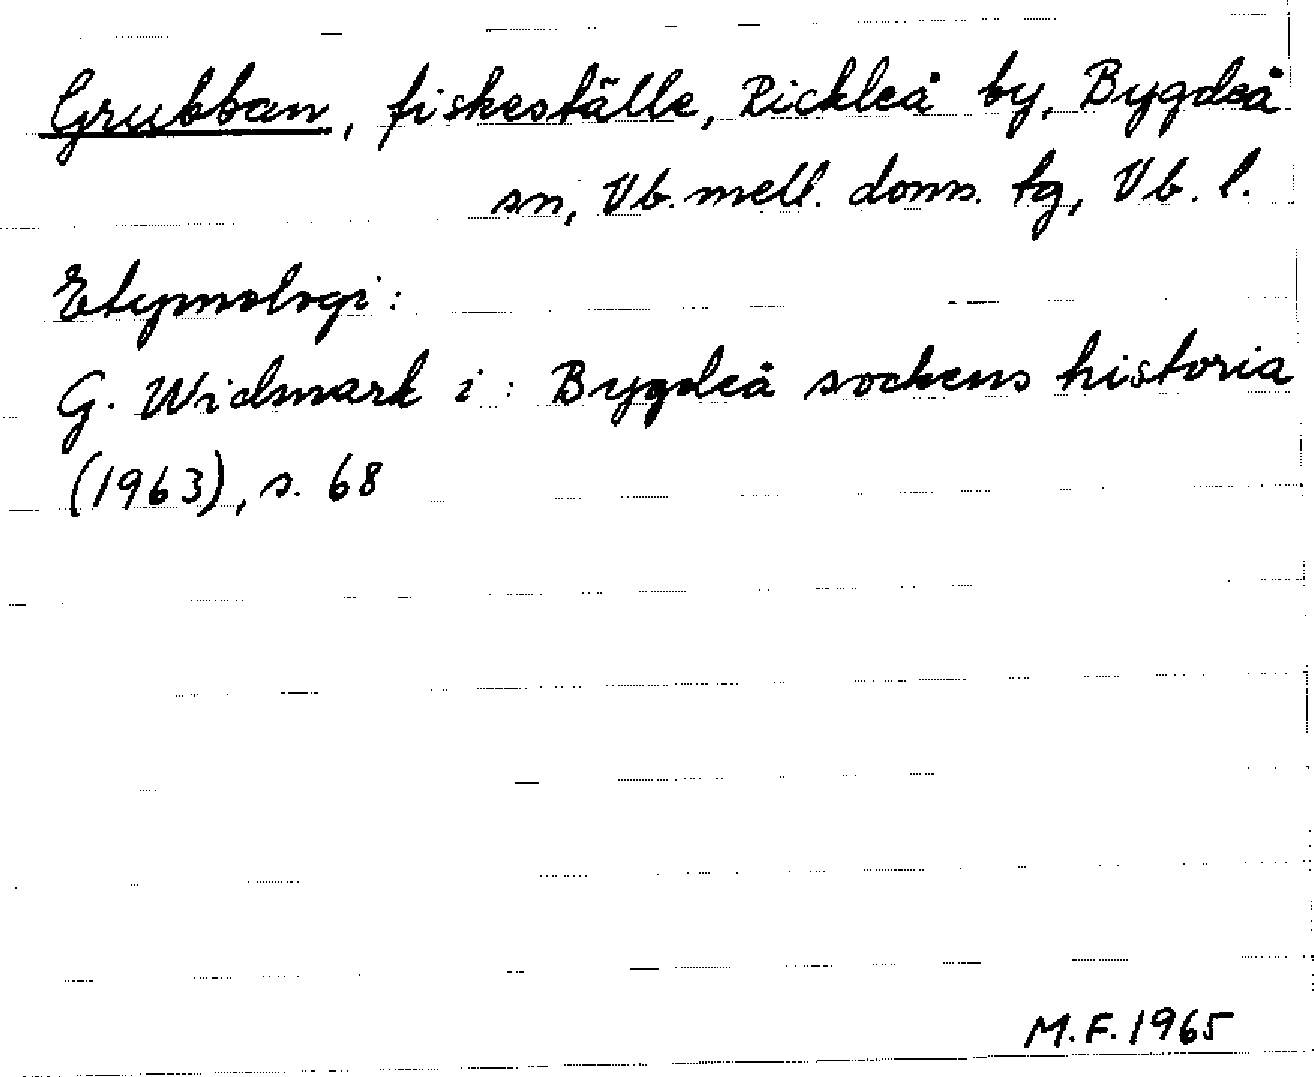 Grubban, fiskeställe, Rickleå by, Bygdeå
sn, Vb. mell. doms. tg, Vb. l.
Etymologi:
G. Widmark i: Bygdeå sockens historia
(1963), s. 68
M.F. 1965